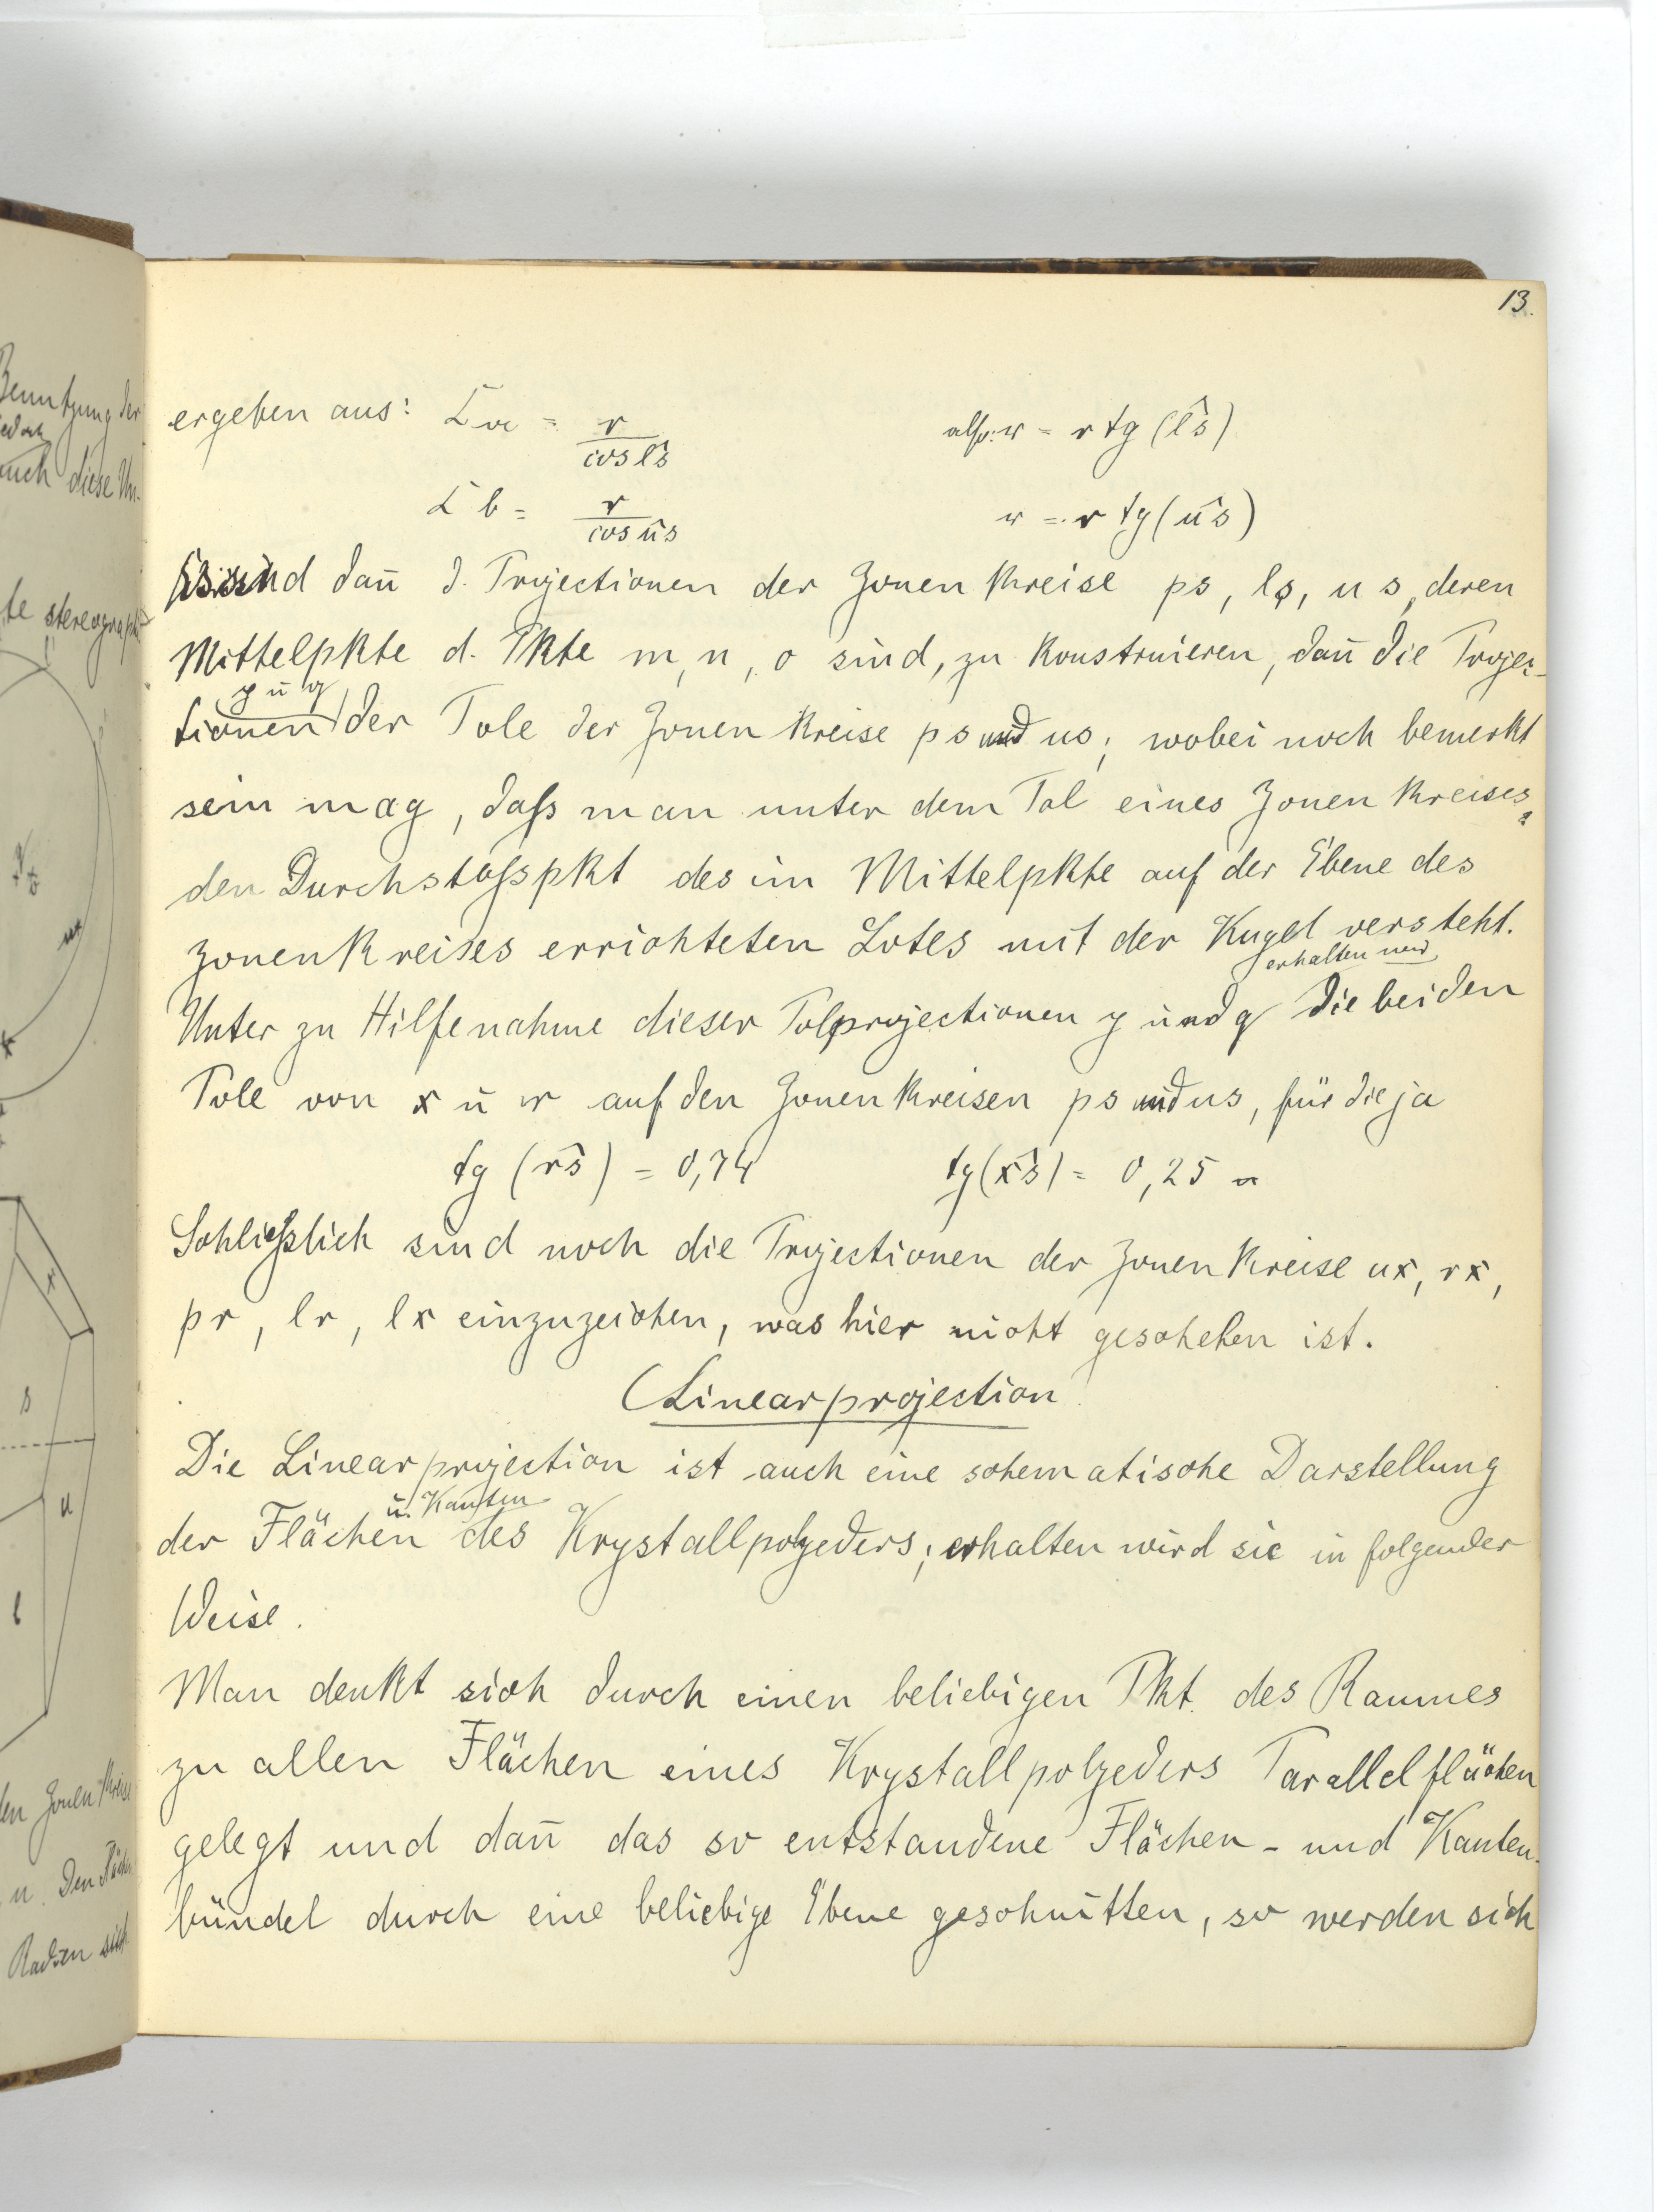 13.
ergeben aus: Σα = r / cos l̂s also: r = r tg (l̂s)
Σ b = r / cos ûs r = r tg (ûs)
Es sind dañ d. Projectionen der Zonenkreise ps, ls, us, deren
Mittelpkte d. Pkte m, n, o sind, zu konstruieren, dañ die Projec-
tionen y ū q der Pole der Zonenkreise ps und us; wobei noch bemerkt
sein mag, daſs man unter dem Pol eines Zonenkreises
den Durchstoſspkt des im Mittelpkte auf der Ebene des
Zonenkreises errichteten Lotes mit der Kugel versteht.
Unter zu Hilfenahme dieser Polprojectionen y und q erhalten wir die beiden
Pole von x ū r auf den Zonenkreisen ps und us, für die ja
tg (r̂s) = 0,74 tg (x̂s) = 0,25
Schlieſslich sind noch die Projectionen der Zonenkreise ux, rx,
pr, lr, lx einzuzeichen, was hier nicht geschehen ist.
(Linearprojection
Die Linearprojection ist auch eine schematische Darstellung
der Flächen ū. Kanten des Krystallpolyeders; erhalten wird sie in folgender
Weise.
Man denkt sich durch einen beliebigen Pkt. des Raumes
zu allen Flächen eines Krystallpolyeders Parallelflächen
gelegt und dañ das so entstandene Flächen- und Kanten-
bündel durch eine beliebige Ebene geschnitten, so werden sich
Benutzung der
auch diese
te stereograph
s
u
l
x
Zonenkreis